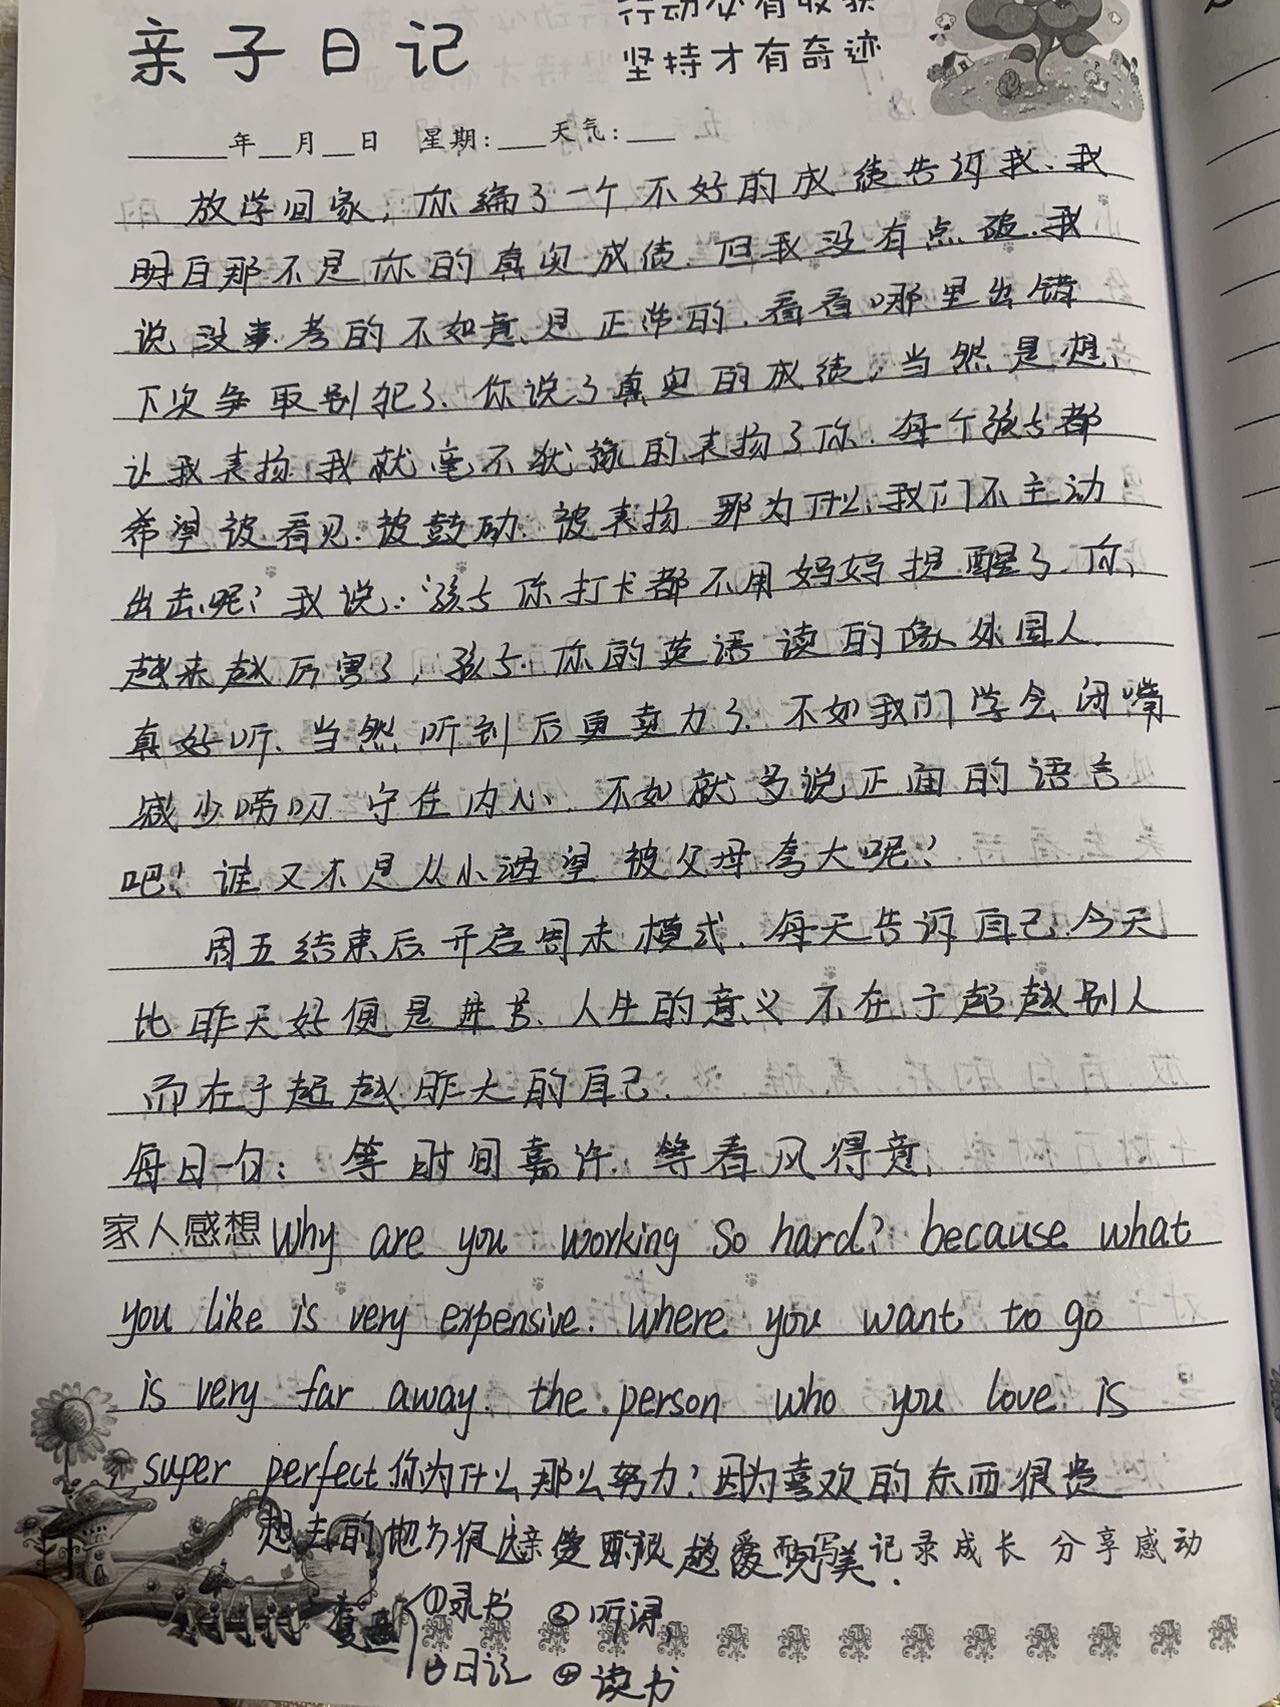 行动必有收获
亲子日记
坚持才有奇迹
年 月 日 星期: 天气:
放学回家,你编了一个不好的成绩告诉我、我
明白那不是你的真实成绩.但我没有点破.我
说没事.考的不如意、是正常的.看看哪里出错
下次争取别犯了.你说了真实的成绩,当然是想
让我表扬.我就毫不犹豫的表扬了你.每个孩子都
希望被看见.被鼓励.被表扬 那为什么我们不主动
出去呢?我说:孩子你打卡都不用妈妈提醒了.你
越来越厉害了,孩子.你的英语读的像外国人.
真好听、当然听到后更卖力了.不如我们学会闭嘴
减少唠叨 守住内心.不如就多说正面的语言
吧!谁又不是从小渴望被父母夸大呢?
周五结束后开启周末模式.每天告诉自己今天
比昨天好便是进步、人生的意义不在于超越别人
而在于超越昨天的自己.
每日一句: 等时间嘉许.等春风得意.
家人感想 Why are you working so hard? because what
you like is very expensive. where you want to go
is very far away. the person who you love is
super perfect 你为什么那么努力?因为喜欢的东西很贵
想去的地方很远 爱
亲 记录成长 分享感动
①录书 ②听读
日记 ④读书